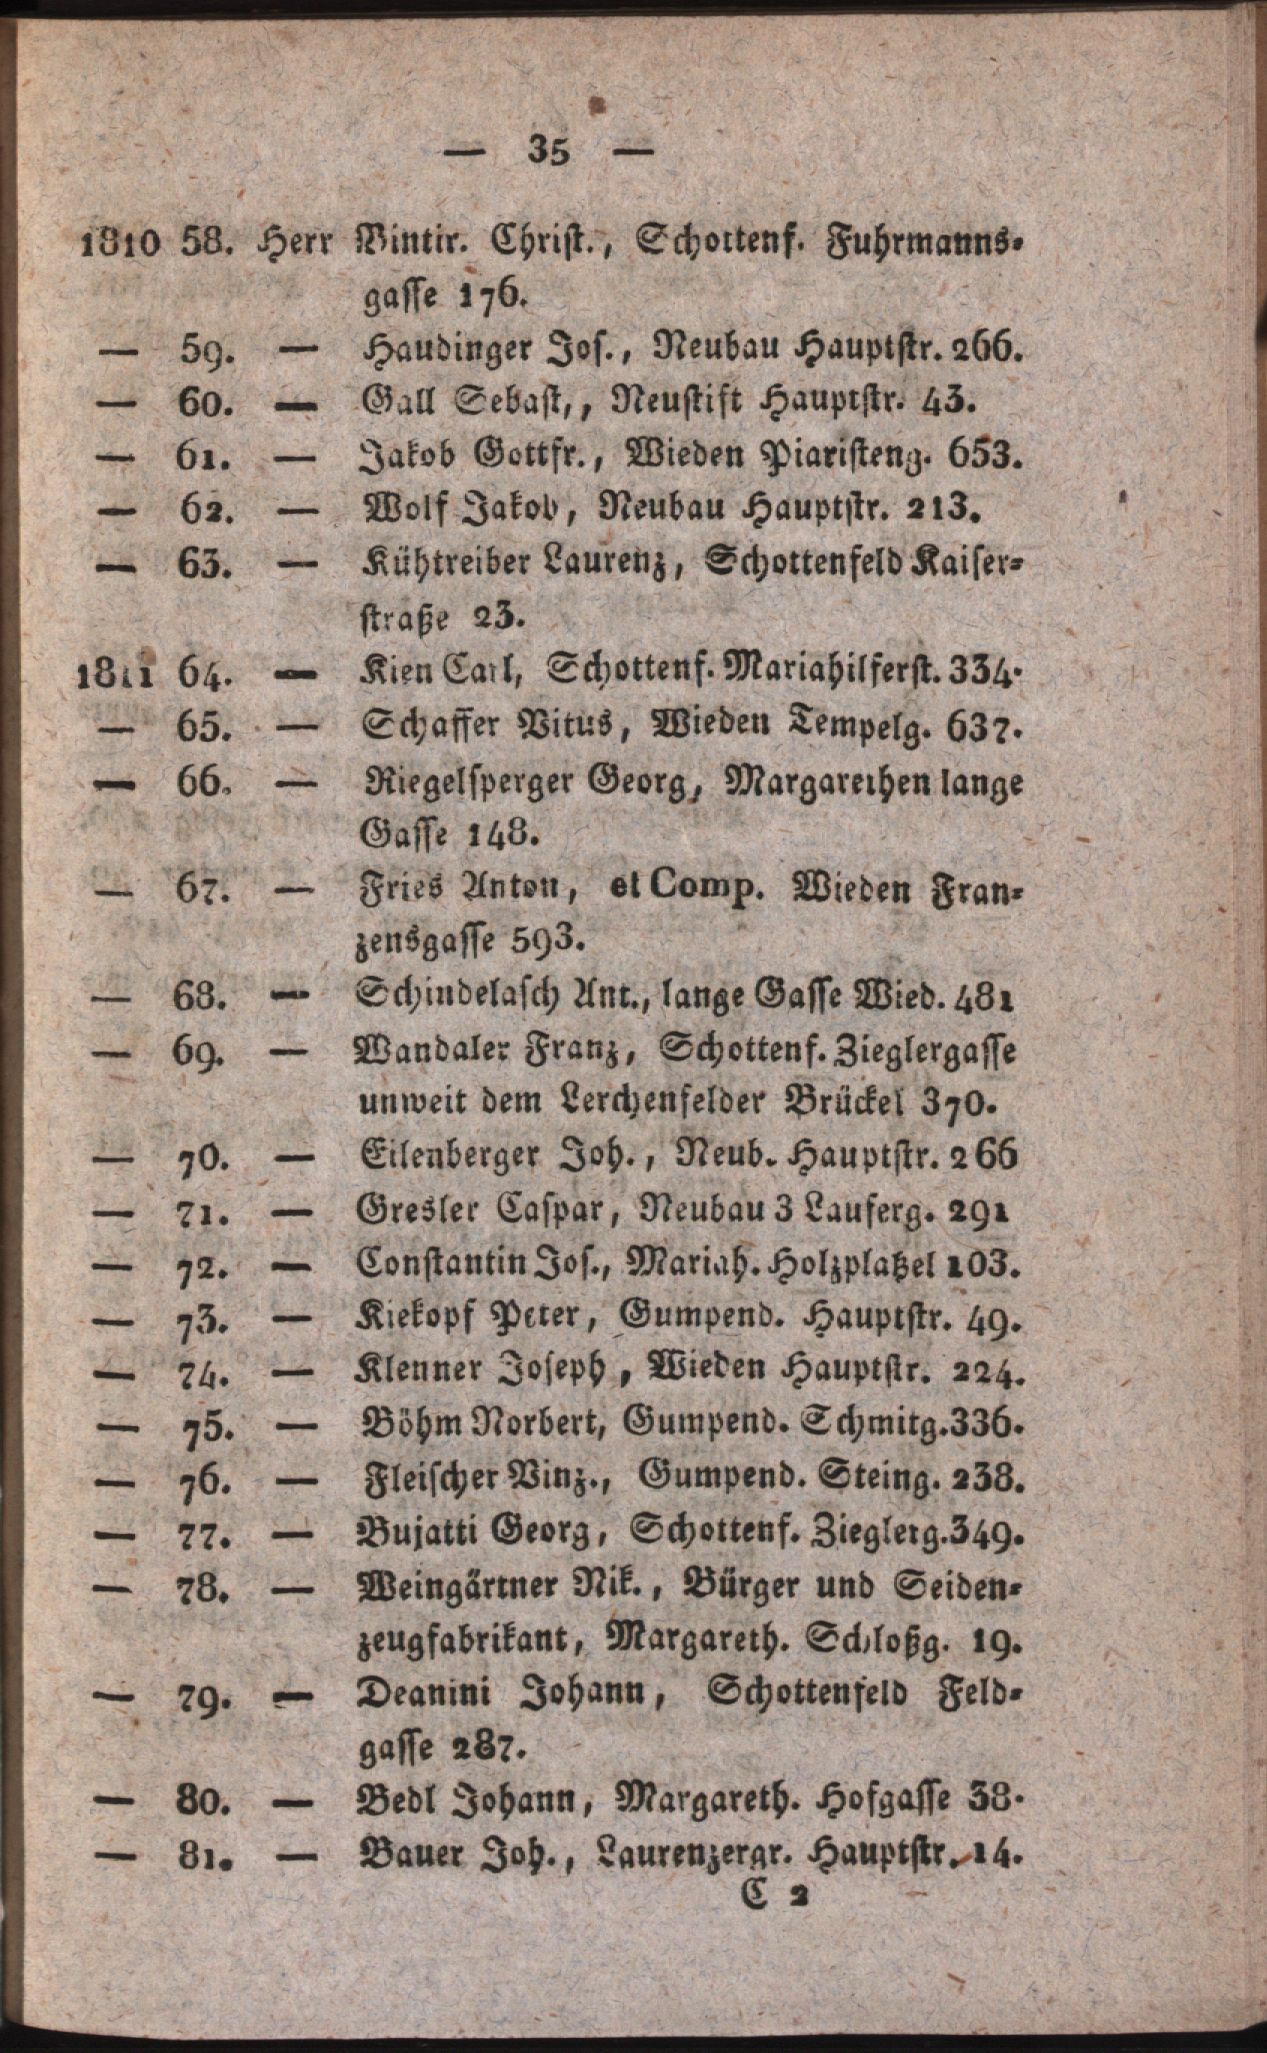 — 35 —
1810 58. Herr Vintir. Christ., Schottenf. Fuhrmanns-
gasse 176.
— 59. — Haudinger Jos., Neubau Hauptstr. 266.
— 60. — Gall Sebast,, Neustift Hauptstr. 43.
— 61. — Jakob Gottfr., Wieden Piaristeng. 653.
— 62. — Wolf Jakob, Neubau Hauptstr. 213.
— 63. — Kühtreiber Laurenz, Schottenfeld Kaiser-
straße 23.
1811 64. — Kien Carl, Schottenf. Mariahilferst. 334.
— 65. — Schaffer Vitus, Wieden Tempelg. 637.
— 66. — Riegelsperger Georg, Margarethen lange
Gasse 148.
— 67. — Fries Anton, et Comp. Wieden Fran-
zensgasse 593.
— 68. — Schindelasch Ant., lange Gasse Wied. 481
— 69. — Wandaler Franz, Schottenf. Zieglergasse
unweit dem Lerchenfelder Brückel 370.
— 70. — Eilenberger Joh., Neub. Hauptstr. 266
— 71. — Gresler Caspar, Neubau 3 Lauferg. 291
— 72. — Constantin Jos., Mariah. Holzplatzel 103.
— 73. — Kiekopf Peter, Gumpend. Hauptstr. 49.
— 74. — Klenner Joseph, Wieden Hauptstr. 224.
— 75. — Böhm Norbert, Gumpend. Schmitg. 336.
— 76. — Fleischer Vinz., Gumpend. Steing. 238.
— 77. — Bujatti Georg, Schottenf. Zieglerg. 349.
— 78. — Weingärtner Nik., Bürger und Seiden-
zeugfabrikant, Margareth. Schloßg. 19.
— 79. — Deanini Johann, Schottenfeld Feld-
gasse 287.
— 80. — Bedl Johann, Margareth. Hofgasse 38.
— 81. — Bauer Joh., Laurenzergr. Hauptstr. 14.
C 2